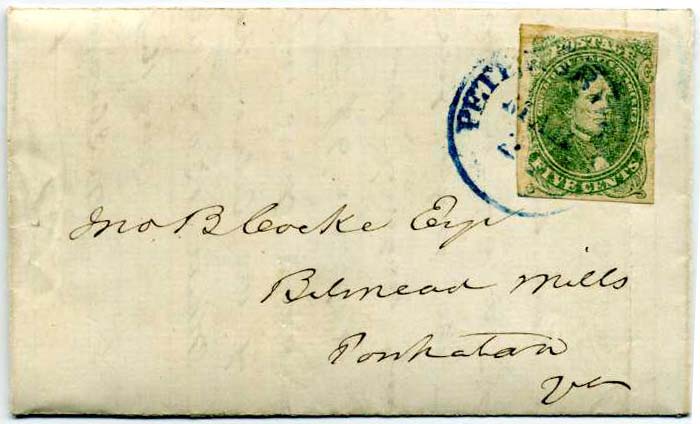 POSTAGE
FIVE CENTS
PETE
Jno B Cocke Esq
Belmead Mills
Powhatan
Va